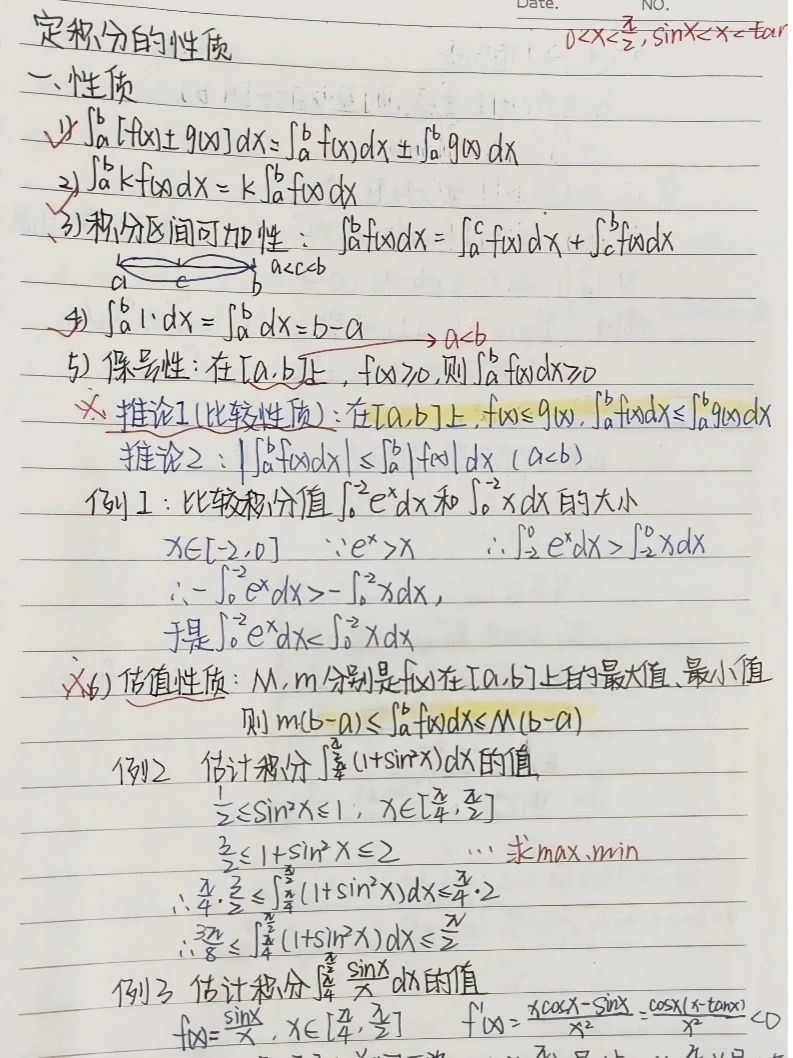 Date. NO.
0<x<π/2, sinx<x<tan
定积分的性质
一、性质
1) ∫ₐᵇ[f(x)±g(x)]dx=∫ₐᵇf(x)dx±∫ₐᵇg(x)dx
2) ∫ₐᵇkf(x)dx=k∫ₐᵇf(x)dx
3) 积分区间可加性: ∫ₐᵇf(x)dx=∫ₐᶜf(x)dx+∫_c^b f(x)dx
a c b a<c<b
4) ∫ₐᵇ1·dx=∫ₐᵇdx=b-a
→a<b
5) 保号性:在[a,b]上,f(x)≥0,则∫ₐᵇf(x)dx≥0
※ 推论1(比较性质):在[a,b]上,f(x)≤g(x),∫ₐᵇf(x)dx≤∫ₐᵇg(x)dx
推论2:|∫ₐᵇf(x)dx|≤∫ₐᵇ|f(x)|dx (a<b)
例1:比较积分值∫₀⁻²eˣdx和∫₀⁻²xdx的大小
x∈[-2,0] ∵eˣ>x ∴∫₋₂⁰eˣdx>∫₋₂⁰xdx
∴-∫₀⁻²eˣdx>-∫₀⁻²xdx,
于是∫₀⁻²eˣdx<∫₀⁻²xdx
※6) 估值性质:M,m分别是f(x)在[a,b]上的最大值、最小值
则m(b-a)≤∫ₐᵇf(x)dx≤M(b-a)
例2 估计积分∫_{π/4}^{π/2}(1+sin²x)dx的值
1/2≤sin²x≤1, x∈[π/4,π/2]
3/2≤1+sin²x≤2 …求max,min
∴π/4·3/2≤∫_{π/4}^{π/2}(1+sin²x)dx≤π/4·2
∴3π/8≤∫_{π/4}^{π/2}(1+sin²x)dx≤π/2
例3 估计积分∫_{π/4}^{π/2} sinx/x dx的值
f(x)=sinx/x, x∈[π/4,π/2] f'(x)=(xcosx-sinx)/x²=cosx(x-tanx)/x²<0